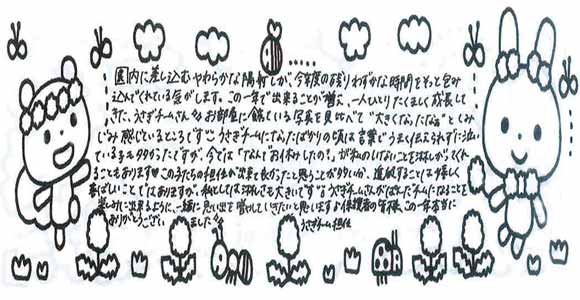 園内に差し込むやわらかな陽射しが、今年度の残りわずかな時間をそっと包み
込んでくれている気がします。この一年で出来ることが増え、一人ひとりたくましく成長して
きた、うさぎチームさん♪お部屋に飾っている写真を見比べて"大きくなったなぁ"としみ
じみ感じているところです♡うさぎチームになったばかりの頃は言葉でうまく伝えられずに泣い
ている子も多かったですが、今では「なんでお休みしたの?」が私のいないことを淋しがってくれ
ることもあります このうたちの担任が出来て良かったと思うことが多い分、進級することは嬉しく
喜ばしいことではありますが、私としては淋しさも大きいです うさぎチームさんがぱんだチームになることを
楽しみに出来るように、一緒に思い出を増やしていきたいと思います♪保護者の皆様、この一年本当に
ありがとうございました♪ うさぎチーム担任